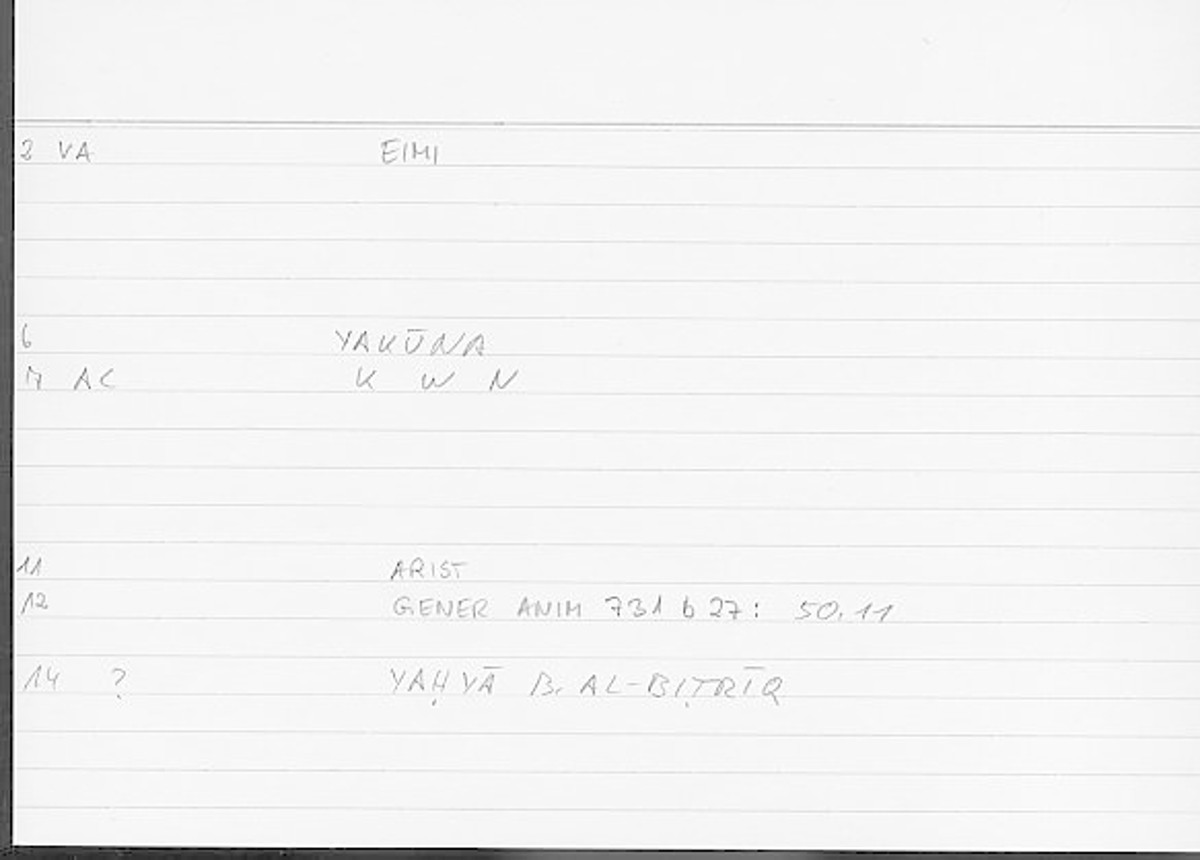 2 VA EIMI
6 YAKŪNA
7 AC K W N
11 ARIST
12 GENER ANIM 731 b 27: 50.11
14 ? YAḤYĀ B. AL-BIṬRĪQ